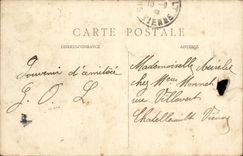 CARTE POSTALE
CORRESPONDANCE
VIENNE
Souvenir d'amitié
G. O. L.
Mademoiselle Aurélie
chez Mme Monnet
rue Villevert
Châtellerault Vienne